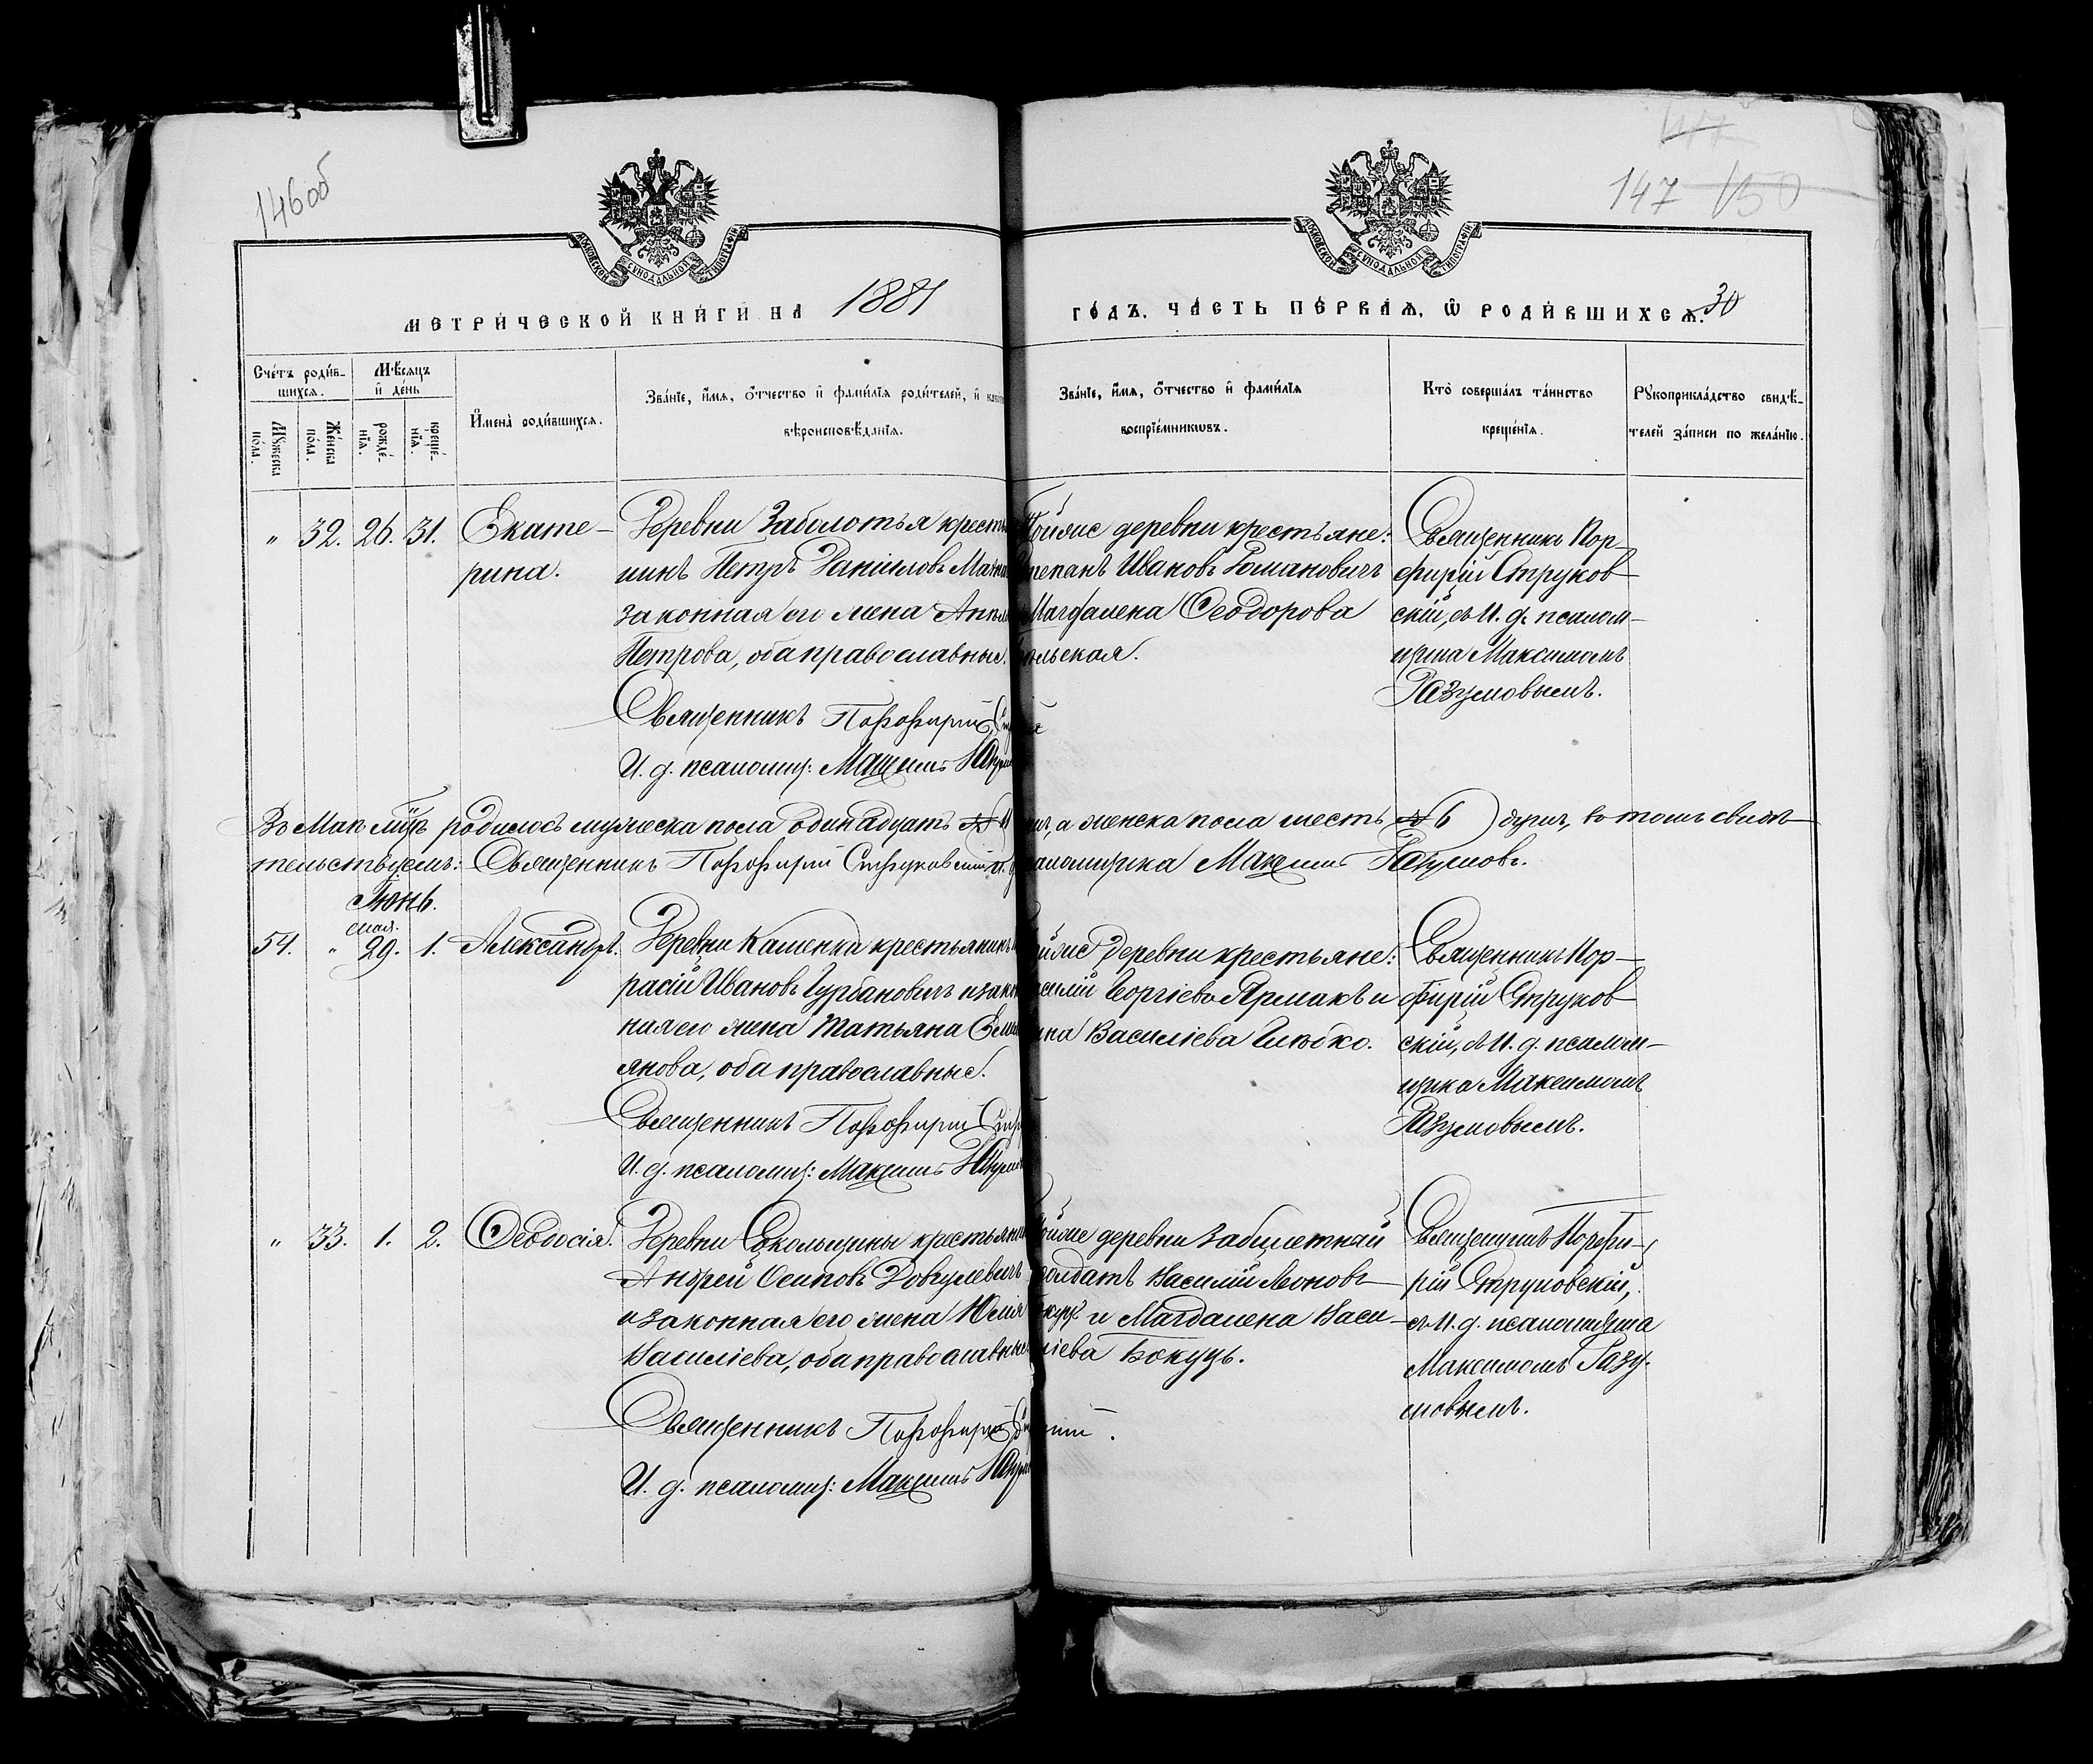 146об
147 150
МОСКОВСКОЙ СѴНОДАЛЬНОЙ ТИПОГРАФІИ
МОСКОВСКОЙ СѴНОДАЛЬНОЙ ТИПОГРАФІИ
МЕТРИ́ЧЕСКОЙ КНИ́ГИ НА 1881
ГО́ДЪ. ЧА́СТЬ ПЕ́РВАѦ, Ѡ҆ РОДИ́ВШИХСѦ. 30
Сче́тъ роди́в-
шихсѧ.
Мѣ́сѧцъ
и҆ де́нь
Мꙋ́жеска
по́ла.
Же́нска
по́ла.
рожде́-
нїѧ.
креще́-
нїѧ.
И҆мена̀ роди́вшихсѧ.
Зва́нїе, и҆́мѧ, ѻ҆́тчество и҆ фами́лїѧ роди́телей, и҆
вѣроисповѣ́данїѧ.
Зва́нїе, и҆́мѧ, ѻ҆́тчество и҆ фами́лїѧ
воспрїе́мникѡвъ.
Кто̀ соверша́лъ та́инство
креще́нїѧ.
Рꙋкоприкла́дство свидѣ́-
телей за́писи по жела́нїю.
" 32. 26. 31.
Екате-
рина.
Деревни Заболотья кресть
нинъ Петръ Даніиловъ
законная его жена
Петрова, оба православные.
Священникъ Порфирій
И. д. псаломщ: Максимъ
Тойже деревни крестьяне:
Степанъ Ивановъ Романовичъ
Магдалена Ѳеодорова
Священникъ Пор-
фирій Струков
скій, съ И. д. псалом-
щика Максимомъ
Разумовымъ.
Въ Маѣ м͠цѣ родилось мужеска пола одинадцать № 11 а женска пола шесть № 6 душъ, въ томъ свидѣ-
тельствуемъ: Священникъ Порфирій Струковскій И. д. псаломщика Максимъ Разумовъ.
Іюнь.
мая.
54. " 29. 1.
Александръ.
Деревни Каменка крестьянинъ
расій Ивановъ Гурбановичъ и закон
ная его жена Татьяна Еме
янова, оба православные.
Священникъ Порфирій
И. д. псаломщ: Максимъ
тойже деревни крестьяне:
Георгіевъ Ярмакъ и
Василіева
Священникъ Пор-
фирій Струков
скій, съ И. д. псалом-
щика Максимомъ
Разумовымъ.
" 33. 1. 2.
Ѳеодосія.
Деревни Сокольщины крестьянин
Андрей Осиповъ Довгулевичъ
и законная его жена Юлія
Василіева, оба православные
Священникъ Порфирій
И. д. псаломщ: Максимъ
Тойже деревни забилетный
солдатъ Василій Леоновъ
и Магдалена Васи-
ліева Бокуць.
Священникъ Порфи-
рій Струковскій,
съ И. д. псаломщика
Максимомъ Разу-
мовымъ.